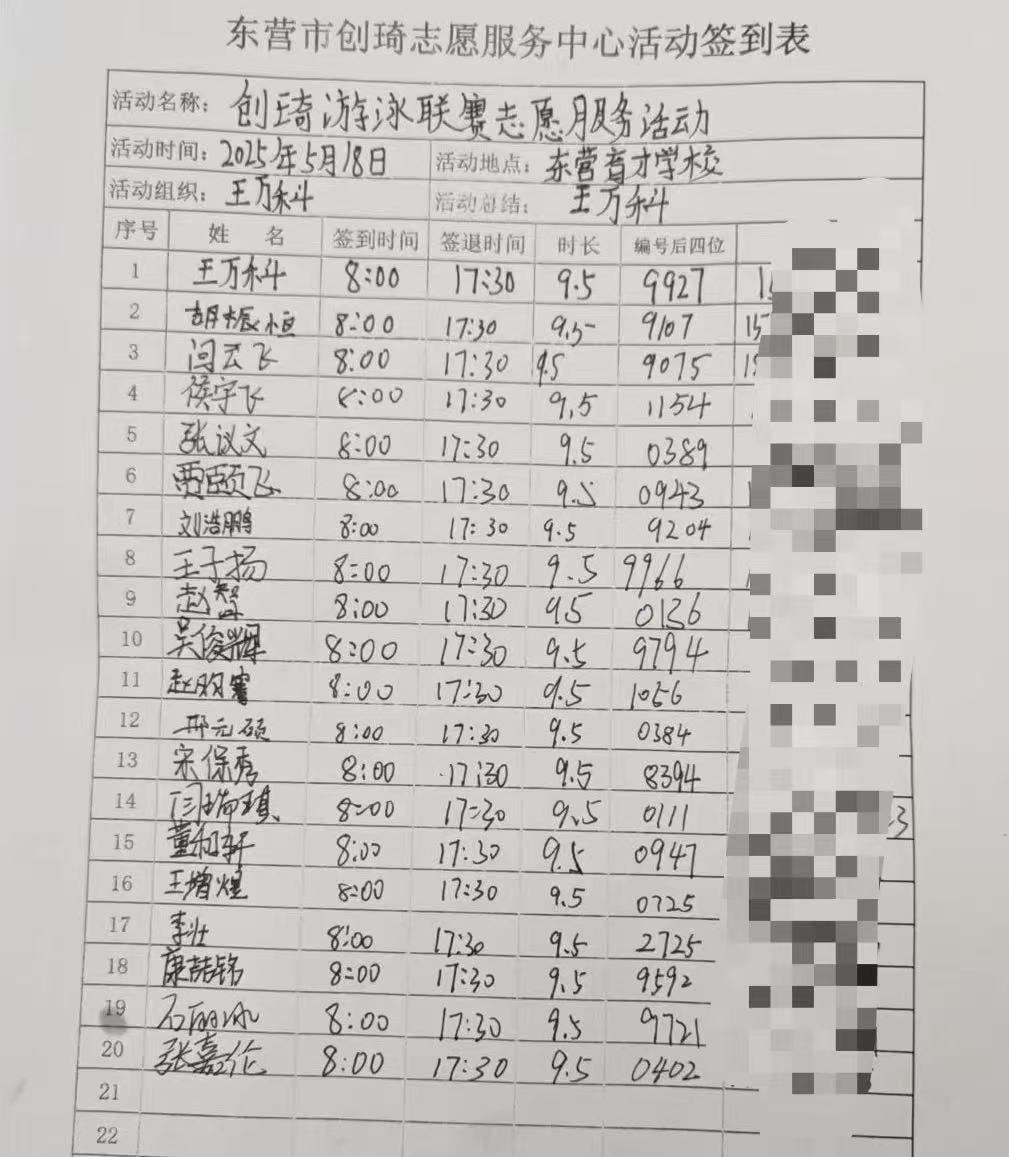 东营市创琦志愿服务中心活动签到表
活动名称: 创琦游泳联赛志愿服务活动
活动时间: 2025年5月18日 活动地点: 东营育才学校
活动组织: 王万科 活动总结: 王万科
序号 姓 名 签到时间 签退时间 时长 编号后四位
1 王万科 8:00 17:30 9.5 9927
2 胡振恒 8:00 17:30 9.5 9107 15
3 闫云飞 8:00 17:30 9.5 9075
4 侯宇飞 8:00 17:30 9.5 1154
5 张议文 8:00 17:30 9.5 0389
6 贾颐飞 8:00 17:30 9.5 0943
7 刘浩鹏 8:00 17:30 9.5 9204
8 王子扬 8:00 17:30 9.5 9966
9 赵智 8:00 17:30 9.5 0136
10 吴俊辉 8:00 17:30 9.5 9794
11 赵 8:00 17:30 9.5 1056
12 邢元硕 8:00 17:30 9.5 0384
13 宋保秀 8:00 17:30 9.5 8394
14 闫瑞琪 8:00 17:30 9.5 0111
15 董和轩 8:00 17:30 9.5 0947
16 王增煜 8:00 17:30 9.5 0725
17 李壮 8:00 17:30 9.5 2725
18 康喆铭 8:00 17:30 9.5 9592
19 石丽冰 8:00 17:30 9.5 9721
20 张嘉伦 8:00 17:30 9.5 0402
21
22